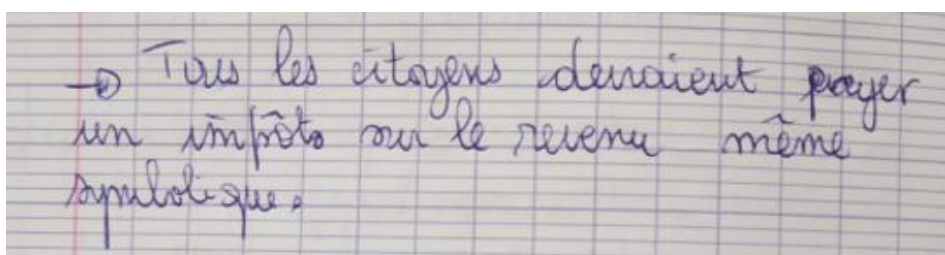 → Tous les citoyens devraient payer
un impôts sur le revenu même
symbolique.